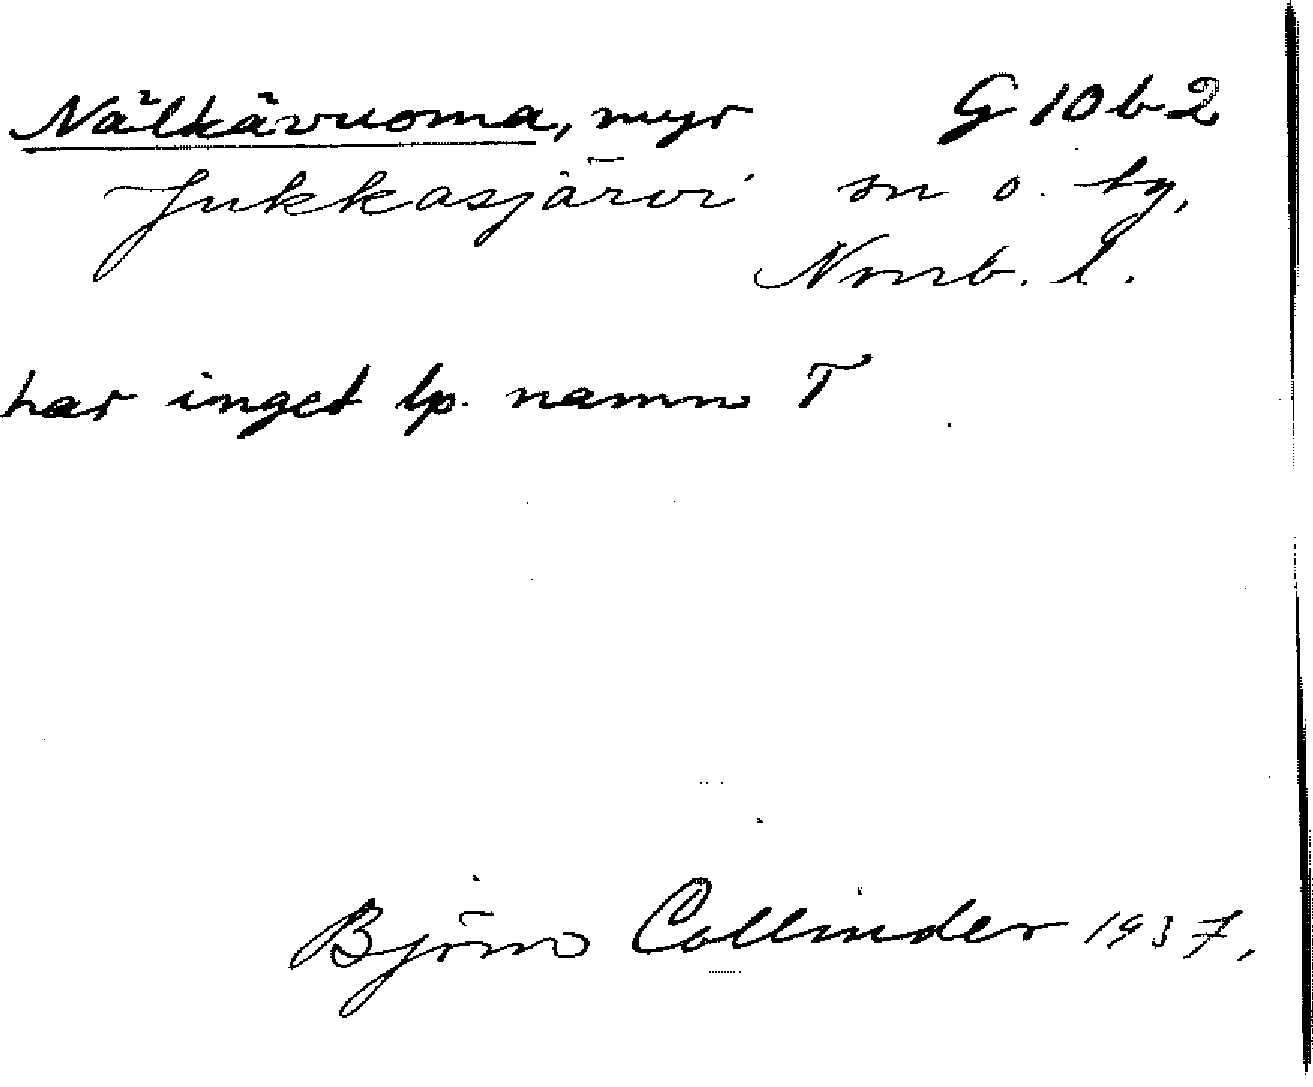 Nälkävuoma, myr G 10 b 2
Jukkasjärvi sn o. tg,
Norrb. l.
har inget lp. namn T
Björn Collinder 1937,